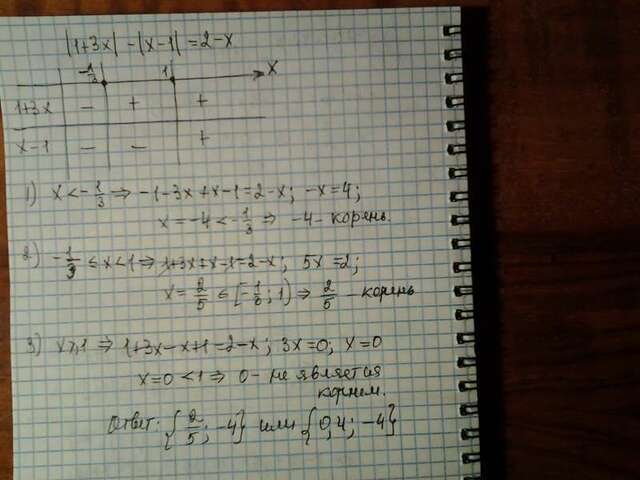 |1+3x| - |x-1| = 2-x
-1/3 1 x
1+3x - + +
x-1 - - +
1) x < -1/3 ⇒ -1-3x+x-1=2-x; -x=4;
x=-4 < -1/3 ⇒ -4- корень.
2) -1/3 ≤ x < 1 ⇒ 1+3x+x-1=2-x; 5x=2;
x = 2/5 ∈ [-1/3; 1) ⇒ 2/5 - корень
3) x≥1 ⇒ 1+3x-x+1=2-x; 3x=0; x=0
x=0 < 1 ⇒ 0- не является
корнем.
Ответ: {2/5; -4} или {0,4; -4}